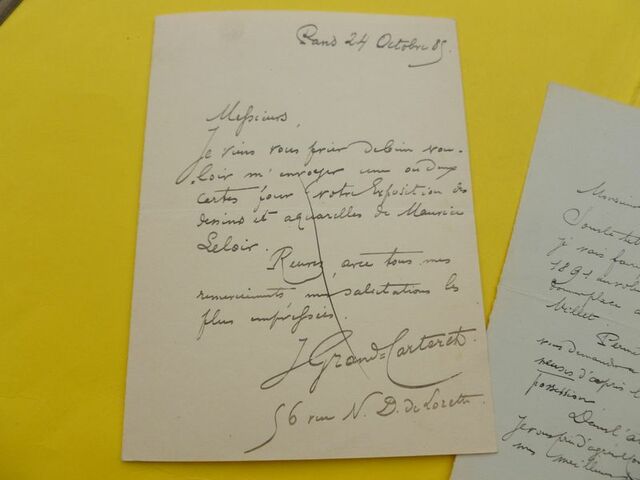 Paris 24 Octobre 85
Messieurs,
Je viens vous prier de bien vou-
loir m'envoyer une ou deux
cartes pour votre Exposition des
dessins et aquarelles de Maurice
Leloir.
Recevez, avec tous mes
remerciements, mes salutations les
plus empressées.
J Grand-Carteret
56 rue N. D. de Lorette.
Monsieur
je vais faire
1891 un vol
remplace
Millet
vous demander
possession
Je vous prie d'agréer
mes meilleur